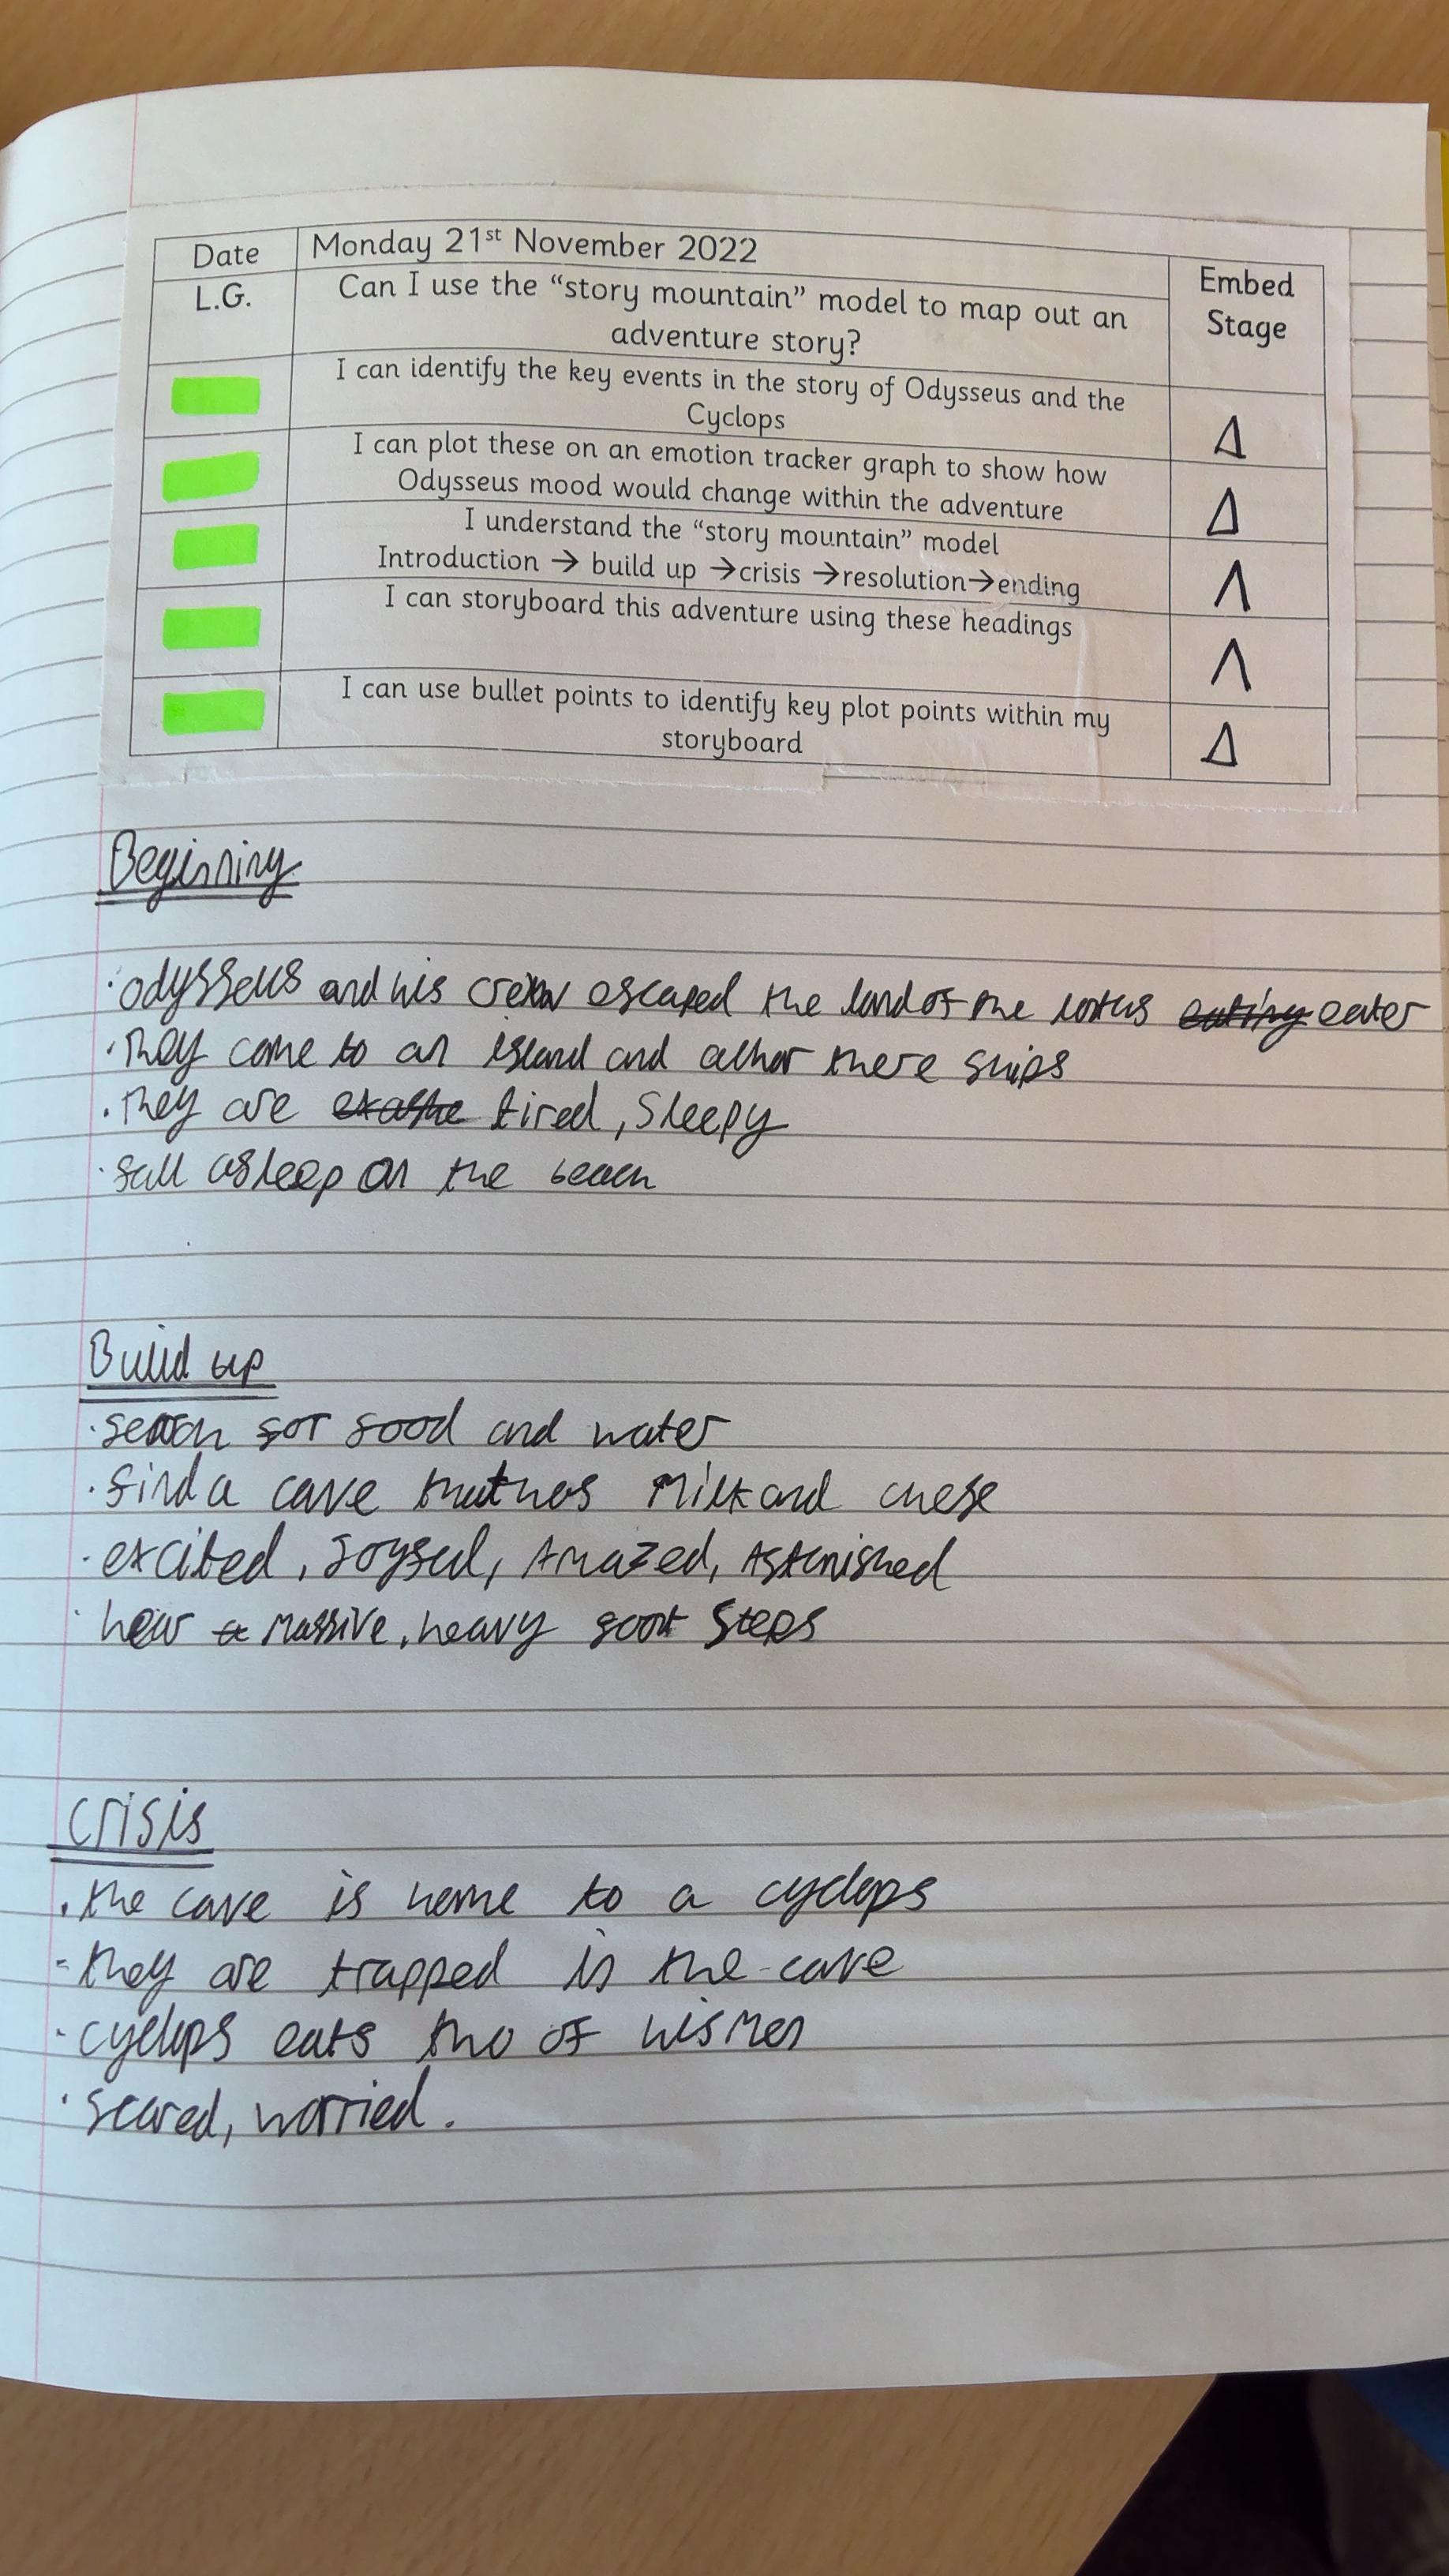 Date Monday 21st November 2022 Embed Stage
L.G. Can I use the “story mountain” model to map out an
adventure story?
I can identify the key events in the story of Odysseus and the
Cyclops Δ
I can plot these on an emotion tracker graph to show how
Odysseus mood would change within the adventure Δ
I understand the “story mountain” model
Introduction → build up →crisis →resolution→ending Λ
I can storyboard this adventure using these headings Λ
I can use bullet points to identify key plot points within my
storyboard Δ
Beginning
·odysseus and his crew escaped the land of the lottus eating eater
·They come to an island and there ships
·They are tired, sleepy
·fall asleep on the beach
Build up
·search for food and water
·find a cave that has milk and chese
·excited, Joyful, Amazed, Astonished
·hear a massive, heavy foot steps
crisis
·the cave is home to a cyclops
-they are trapped in the cave
·cyclops eats two of his men
·scared, worried.